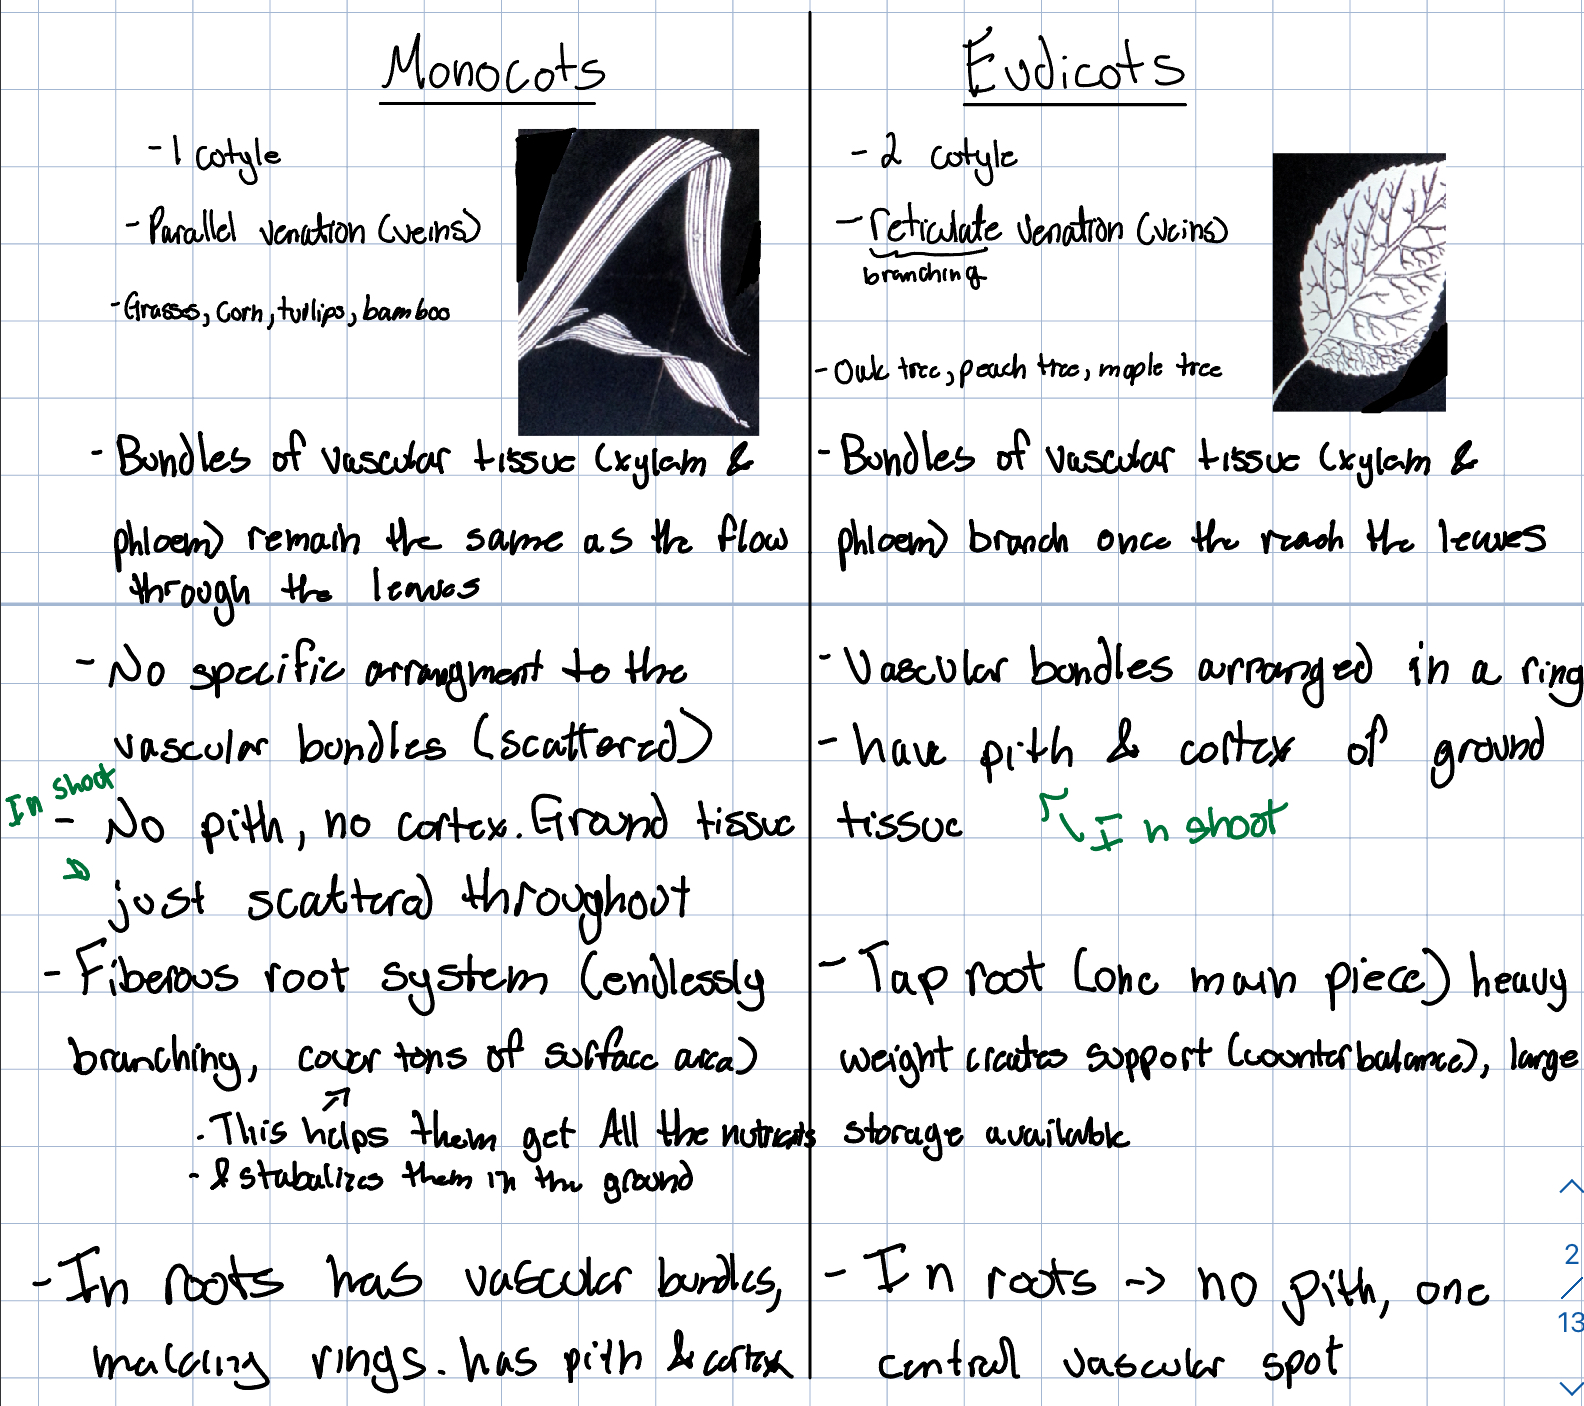 Monocots
- 1 cotyle
- Parallel venation (veins)
- Grasses, corn, tullips, bamboo
- Bundles of vascular tissue (xylem &
phloem) remain the same as the flow
through the leaves
- No specific arrangment to the
vascular bundles (scattered)
In shoot
- No pith, no cortex. Ground tissue
just scattered throughout
- Fiberous root system (endlessly
branching, cover tons of surface area)
. This helps them get All the nutrients
- & stabalizes them in the ground
- In roots has vascular bundles,
making rings. has pith & cortex
Eudicots
- 2 cotyle
- reticulate venation (veins)
branching
- Oak tree, peach tree, maple tree
- Bundles of vascular tissue (xylem &
phloem) branch once the reach the leaves
- Vascular bundles arranged in a ring
- have pith & cortex of ground
tissue
In shoot
- Tap root (one main piece) heavy
weight creates support (counterbalance), large
storage available
- In roots -> no pith, one
central vascular spot
2
/
13